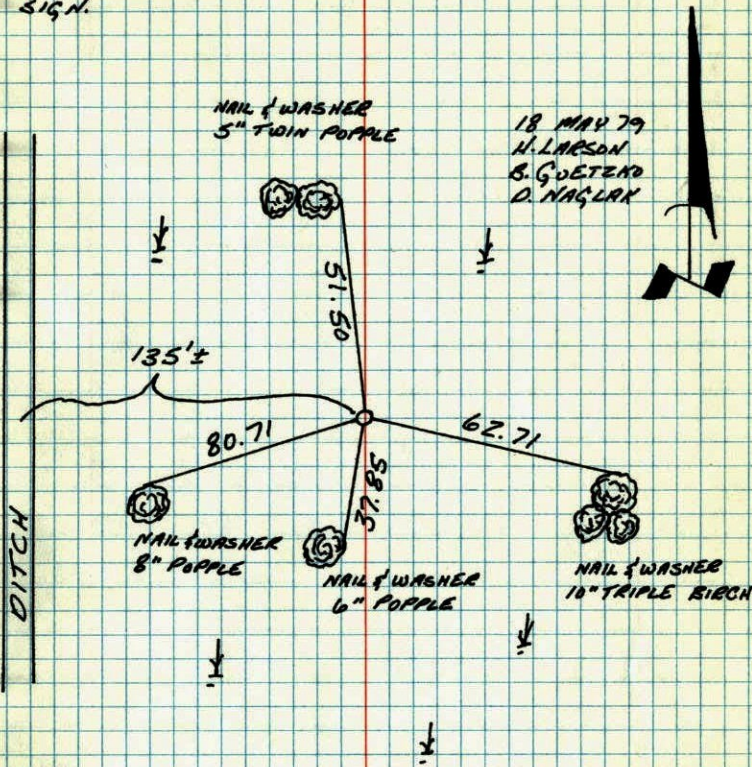 SIGN.
NAIL & WASHER
5" TWIN POPPLE
18 MAY 79
H. LARSON
B. GOETZKO
D. NAGLAK
51.50
135'±
80.71
62.71
37.85
DITCH
NAIL & WASHER
8" POPPLE
NAIL & WASHER
6" POPPLE
NAIL & WASHER
10" TRIPLE BIRCH